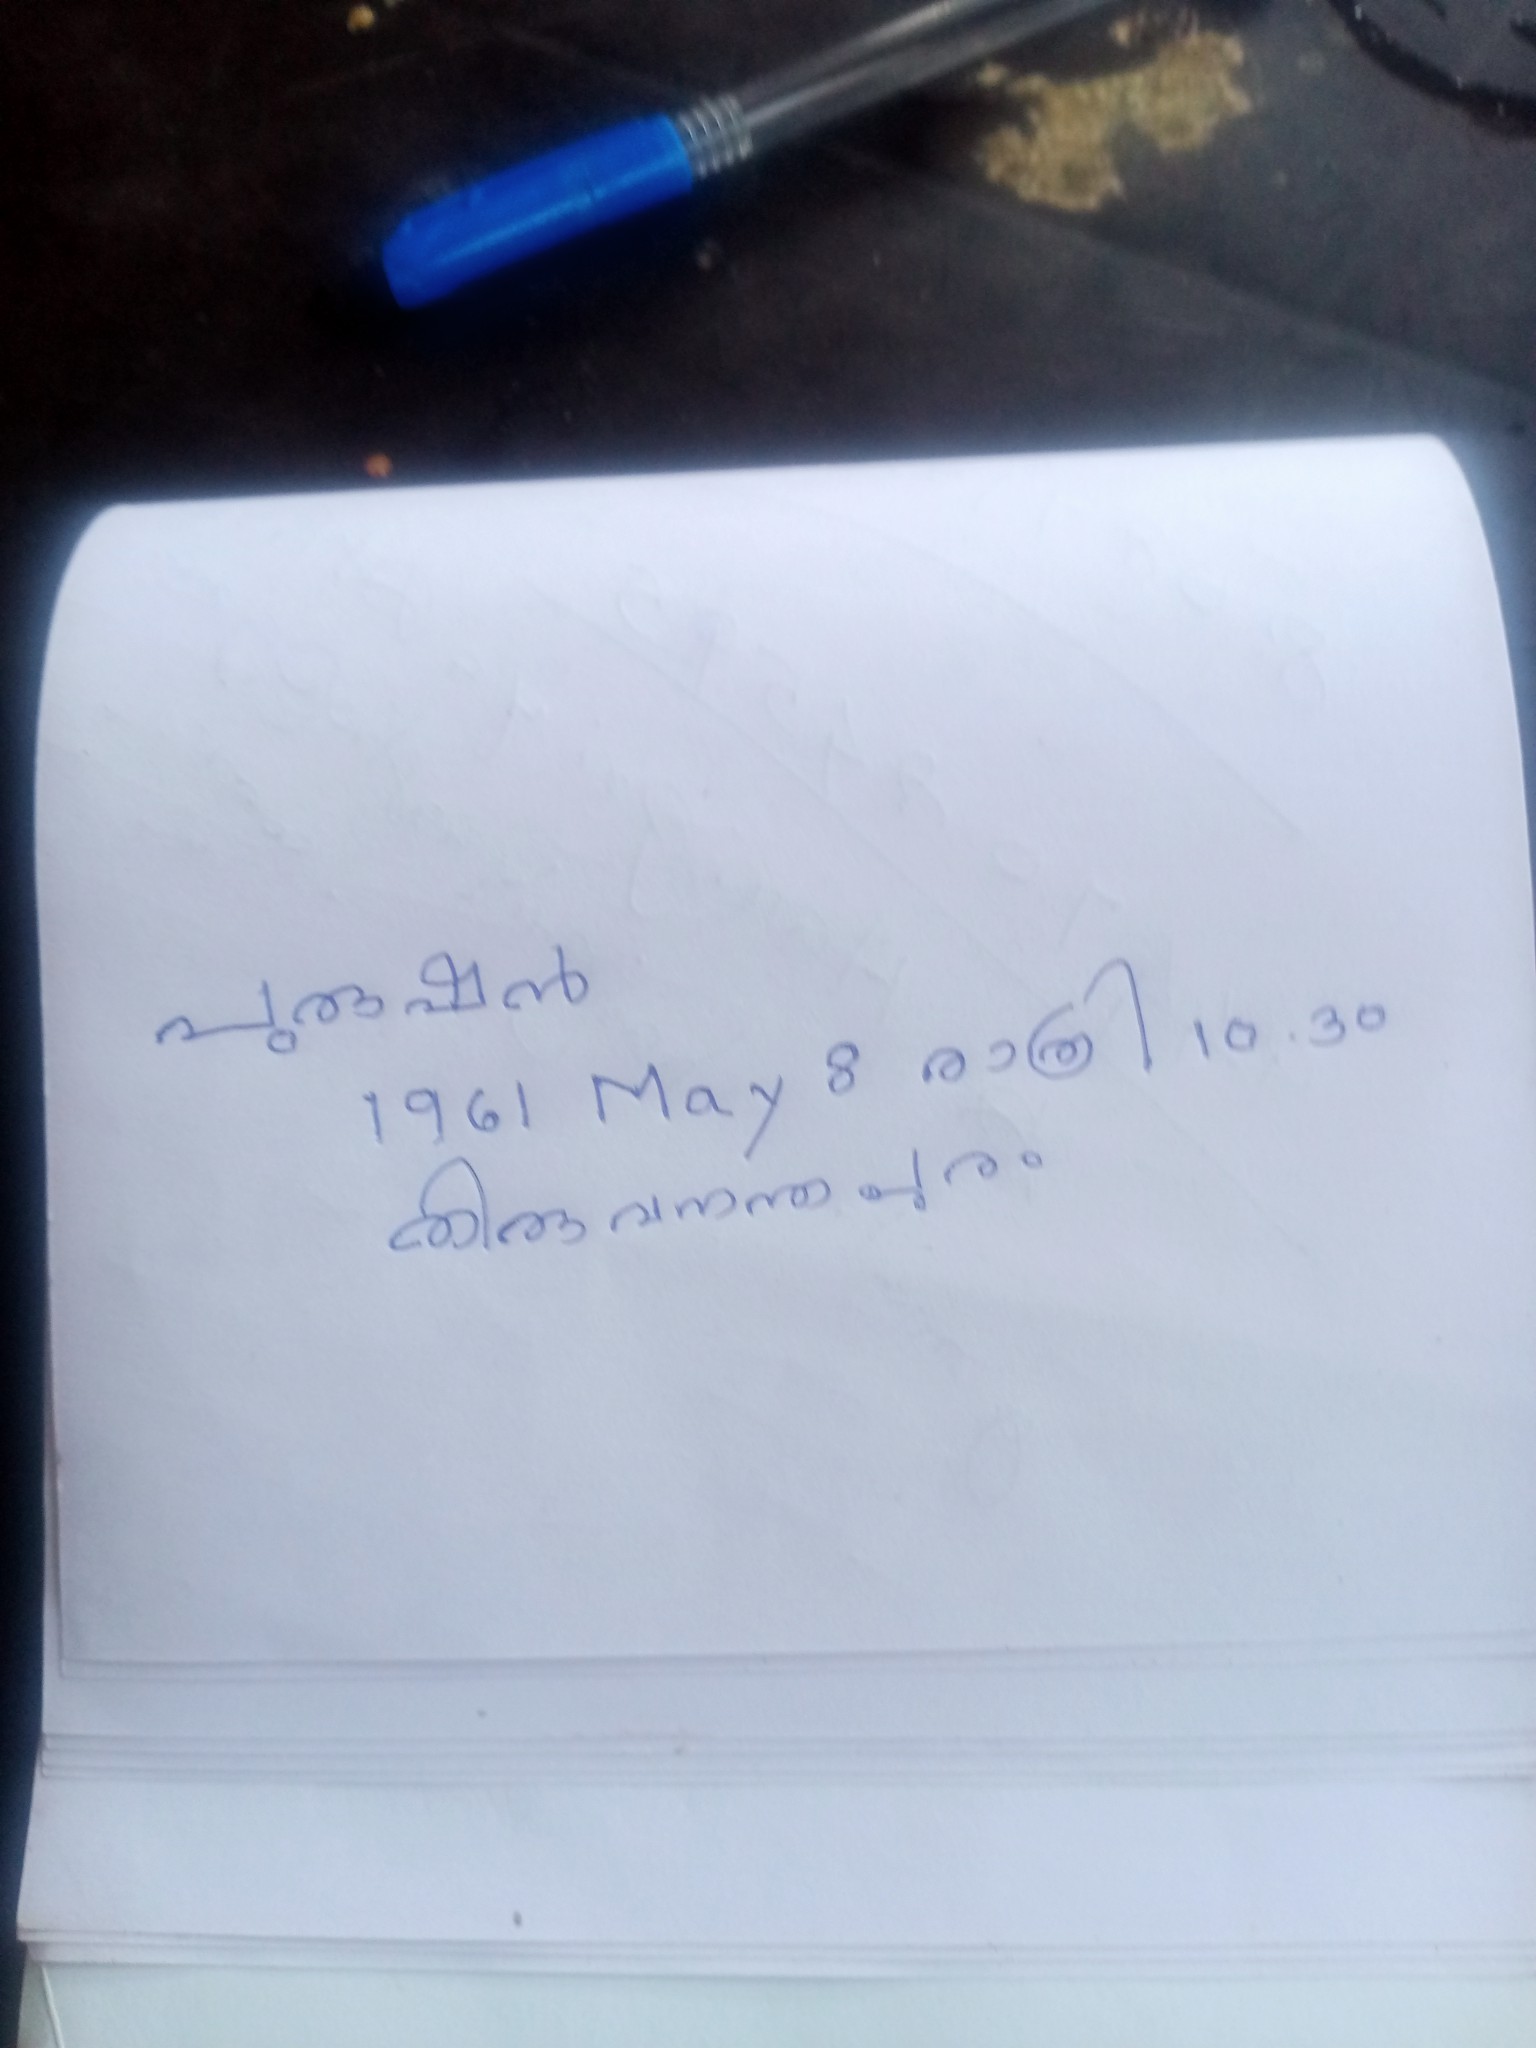 പുരുഷൻ
1961 May 8 രാത്രി 10.30
തിരുവനന്തപുരം